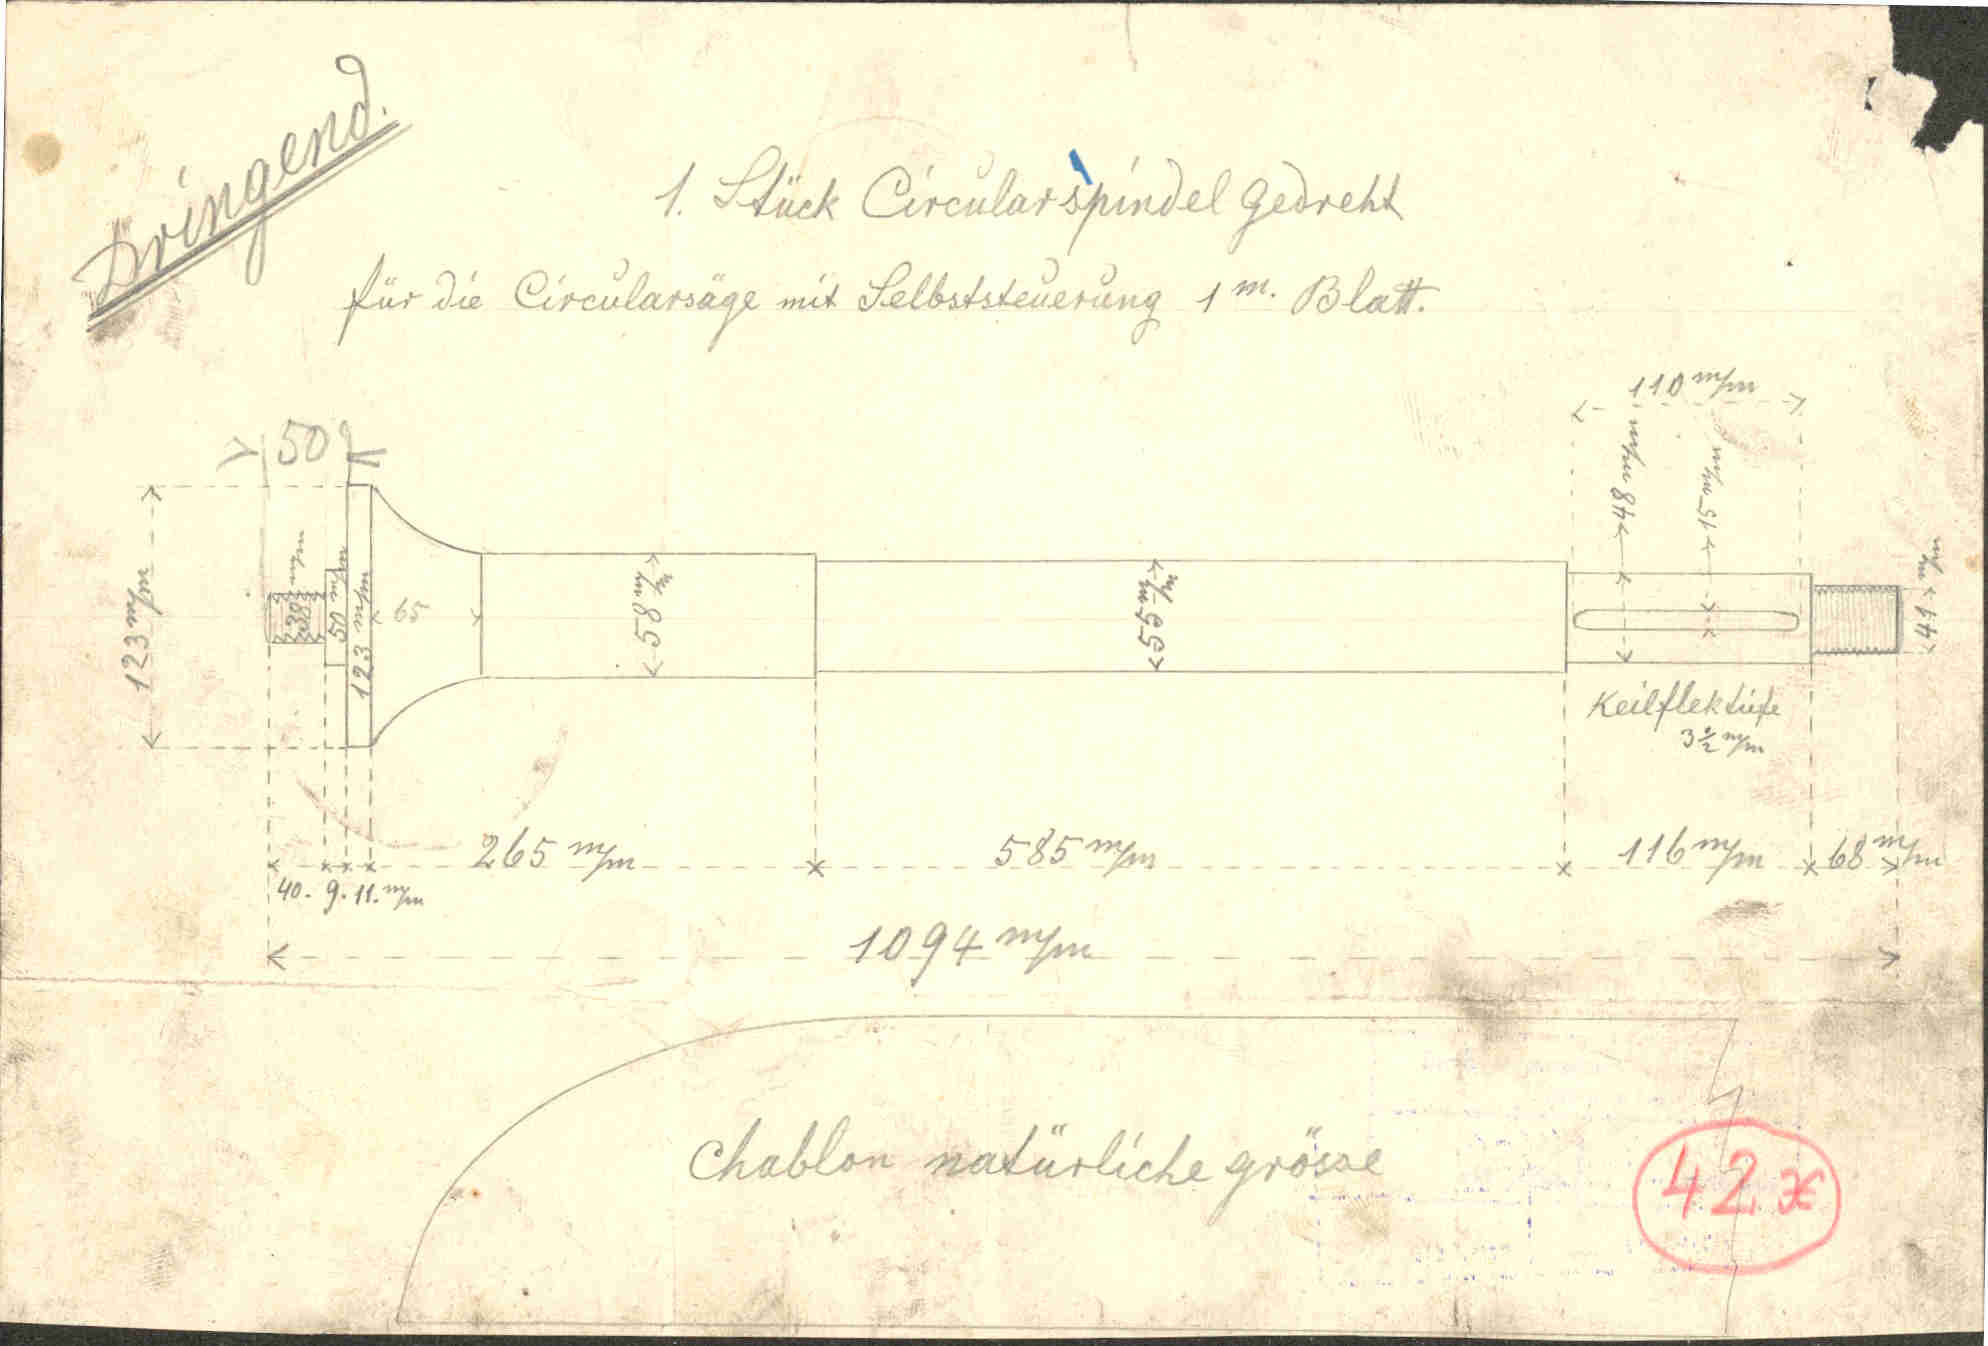 Dringend.
1. Stück Circularspindel gedreht
für die Circularsäge mit Selbststeuerung 1 m. Blatt.
110 m/m
50
48 m/m
15 m/m
123 m/m
38 m/m
50 m/m
123 m/m
65
58 m/m
55 m/m
41 m/m
Keilflektiefe
3 1/2 m/m
265 m/m
585 m/m
116 m/m
68 m/m
40. 9. 11. m/m
1094 m/m
Chablon natürliche grösse
42x